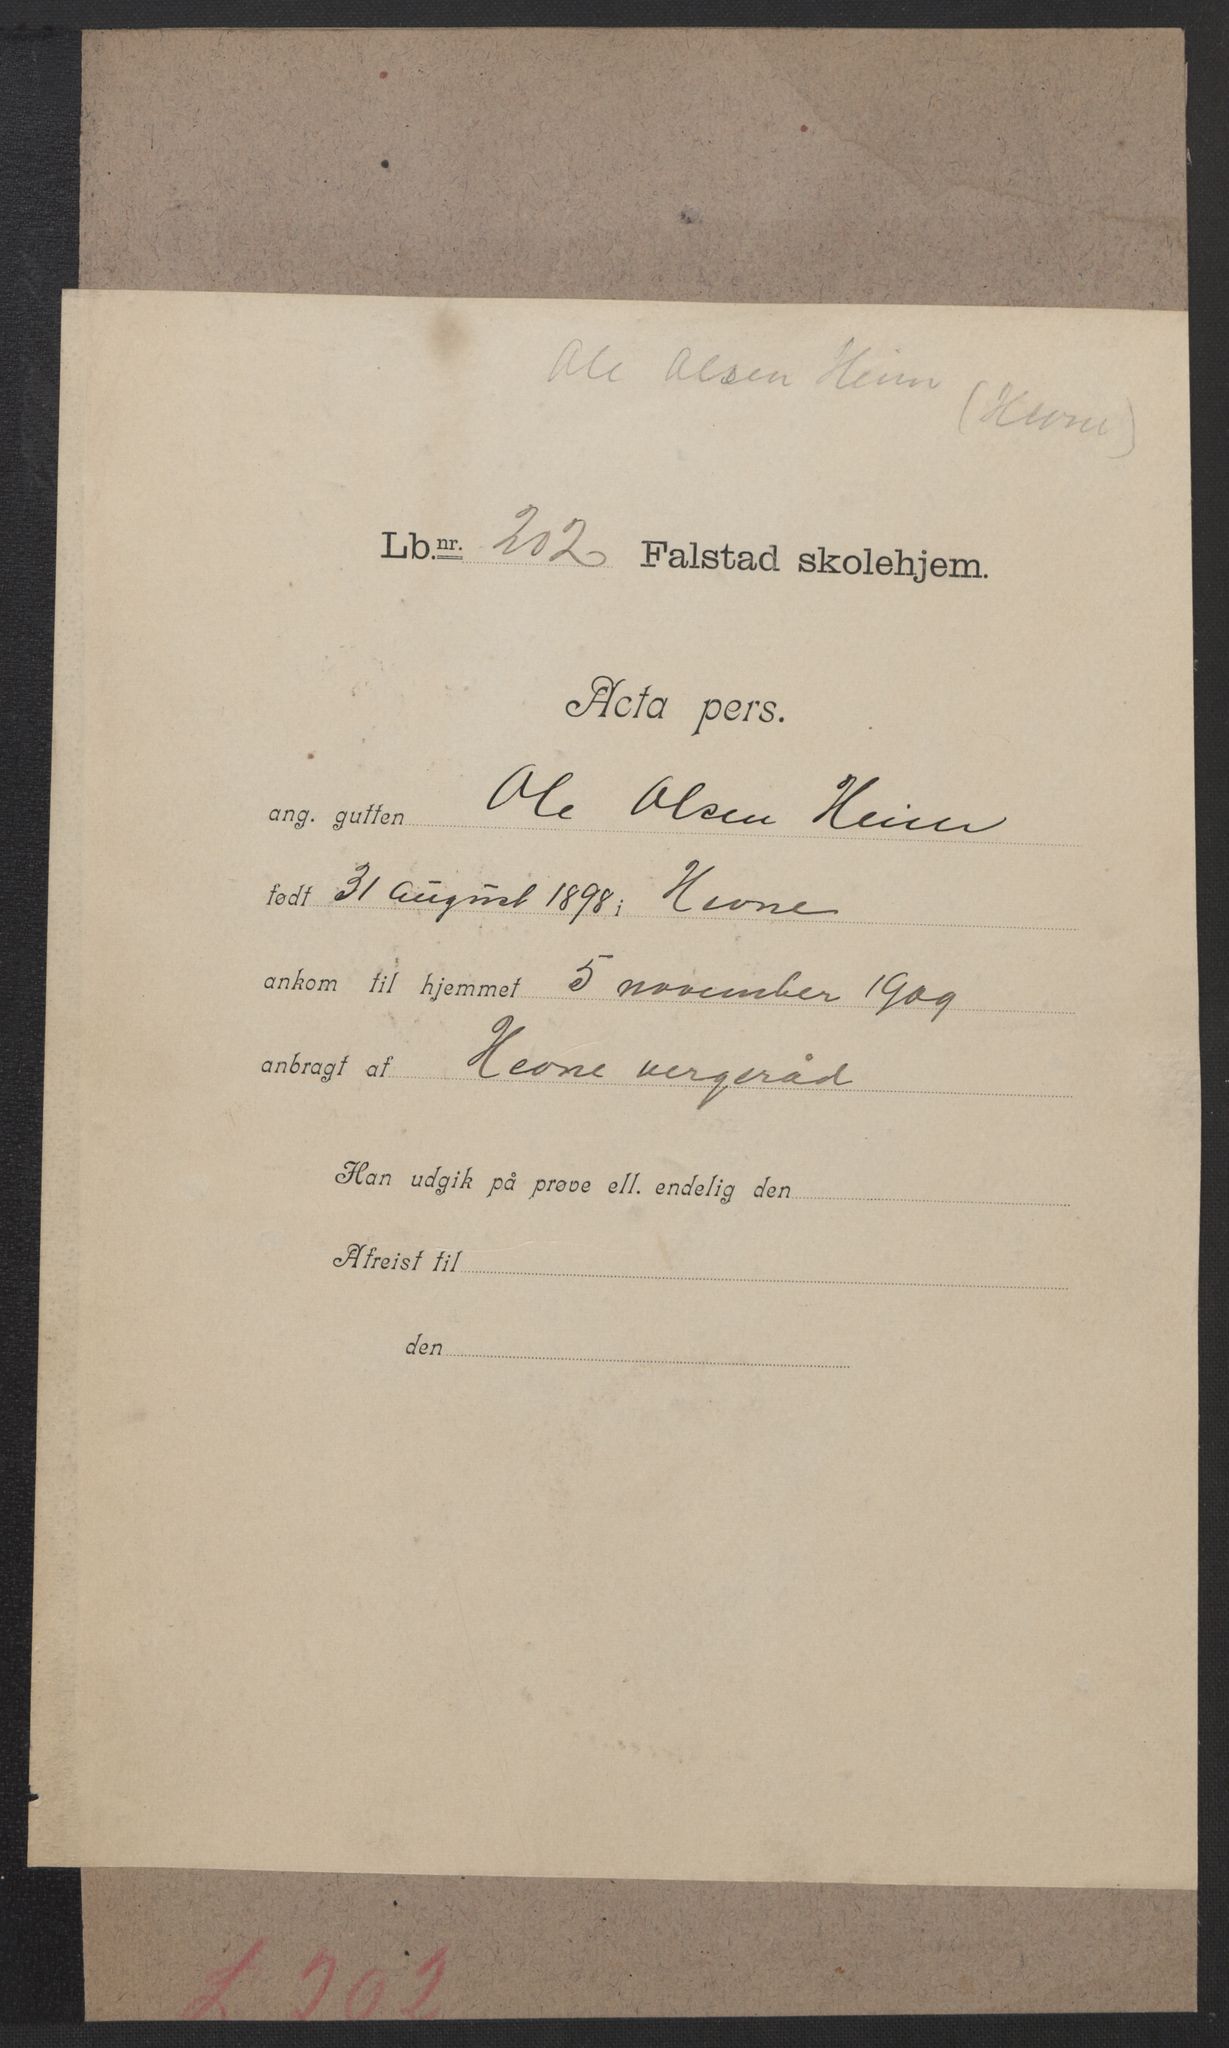 Ole Olsen Heim
(Hevne)
Lb.nr. 202 Falstad skolehjem.
Acta pers.
ang. gutten Ole Olsen Heim
født 31 august 1898 i Hevne
ankom til hjemmet 5 november 1909
anbragt af Hevne vergeråd
Han udgik på prøve ell. endelig den
Afreist til
den
L 202